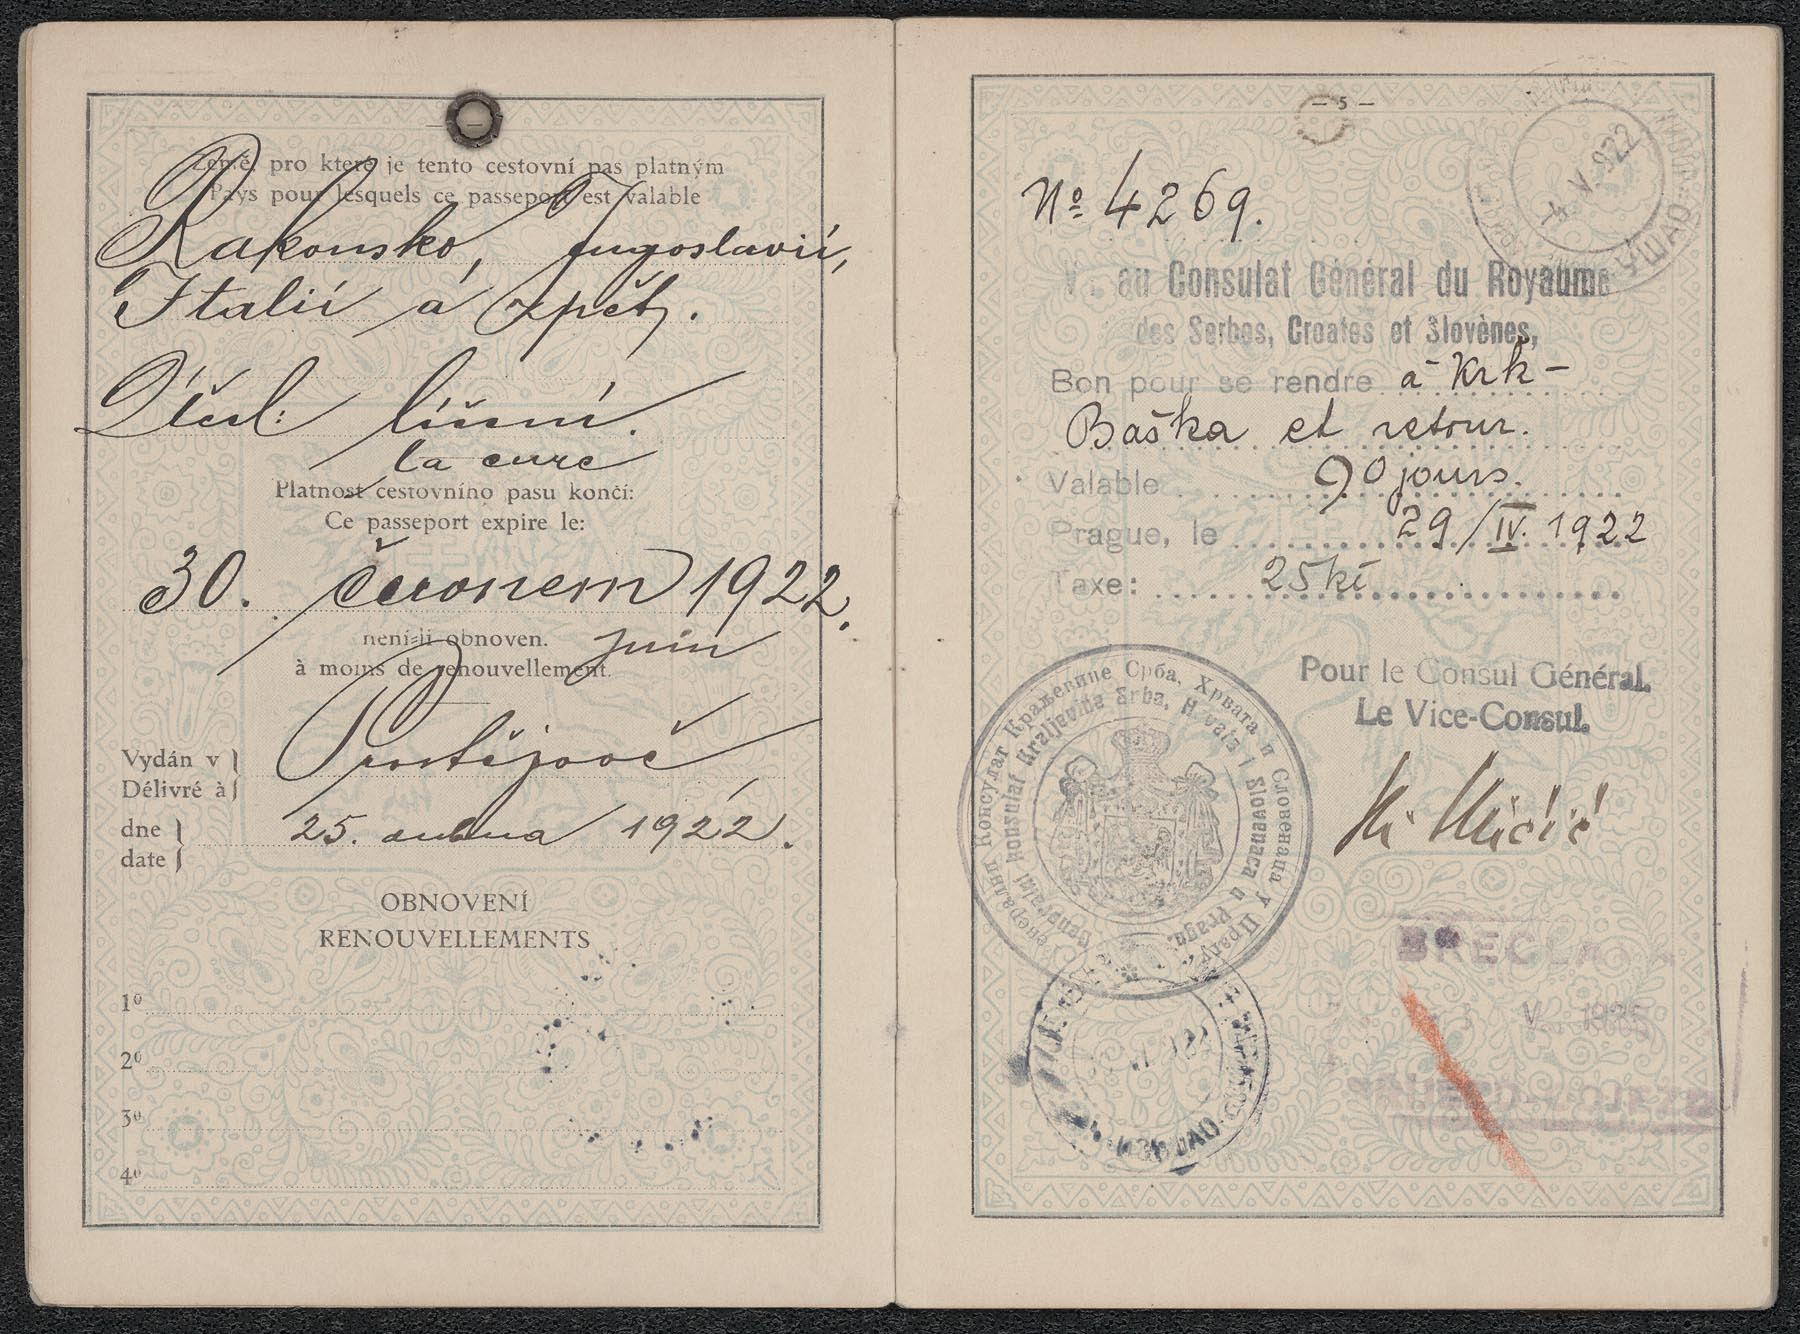 Země, pro které je tento cestovní pas platným
Pays pour lesquels ce passeport est valable
Rakousko, Jugoslavii,
Italii a zpět.
Účel: léčení.
la cure
Platnost cestovního pasu končí:
Ce passeport expire le:
30. červnem 1922.
není-li obnoven. juin
à moins de renouvellement.
Vydán v
Délivré à
Prostějově
dne
date
25. dubna 1922.
OBNOVENÍ
RENOUVELLEMENTS
1º
2º
3º
4º
— 5 —
-4. V. 922
Nº 4269.
V. au Consulat Général du Royaume
des Serbes, Croates et Slovènes,
Bon pour se rendre à Krk-
Baška et retour.
Valable 90 jours.
Prague, le 29/IV. 1922
Taxe: 25 Kč
Pour le Consul Général.
Le Vice-Consul.
Генерални Консулат Краљевине Срба, Хрвата и Словенаца у Прагу
Generalni konsulat Kraljevine Srba, Hrvata i Slovenaca u Pragu.
BŘECLAV